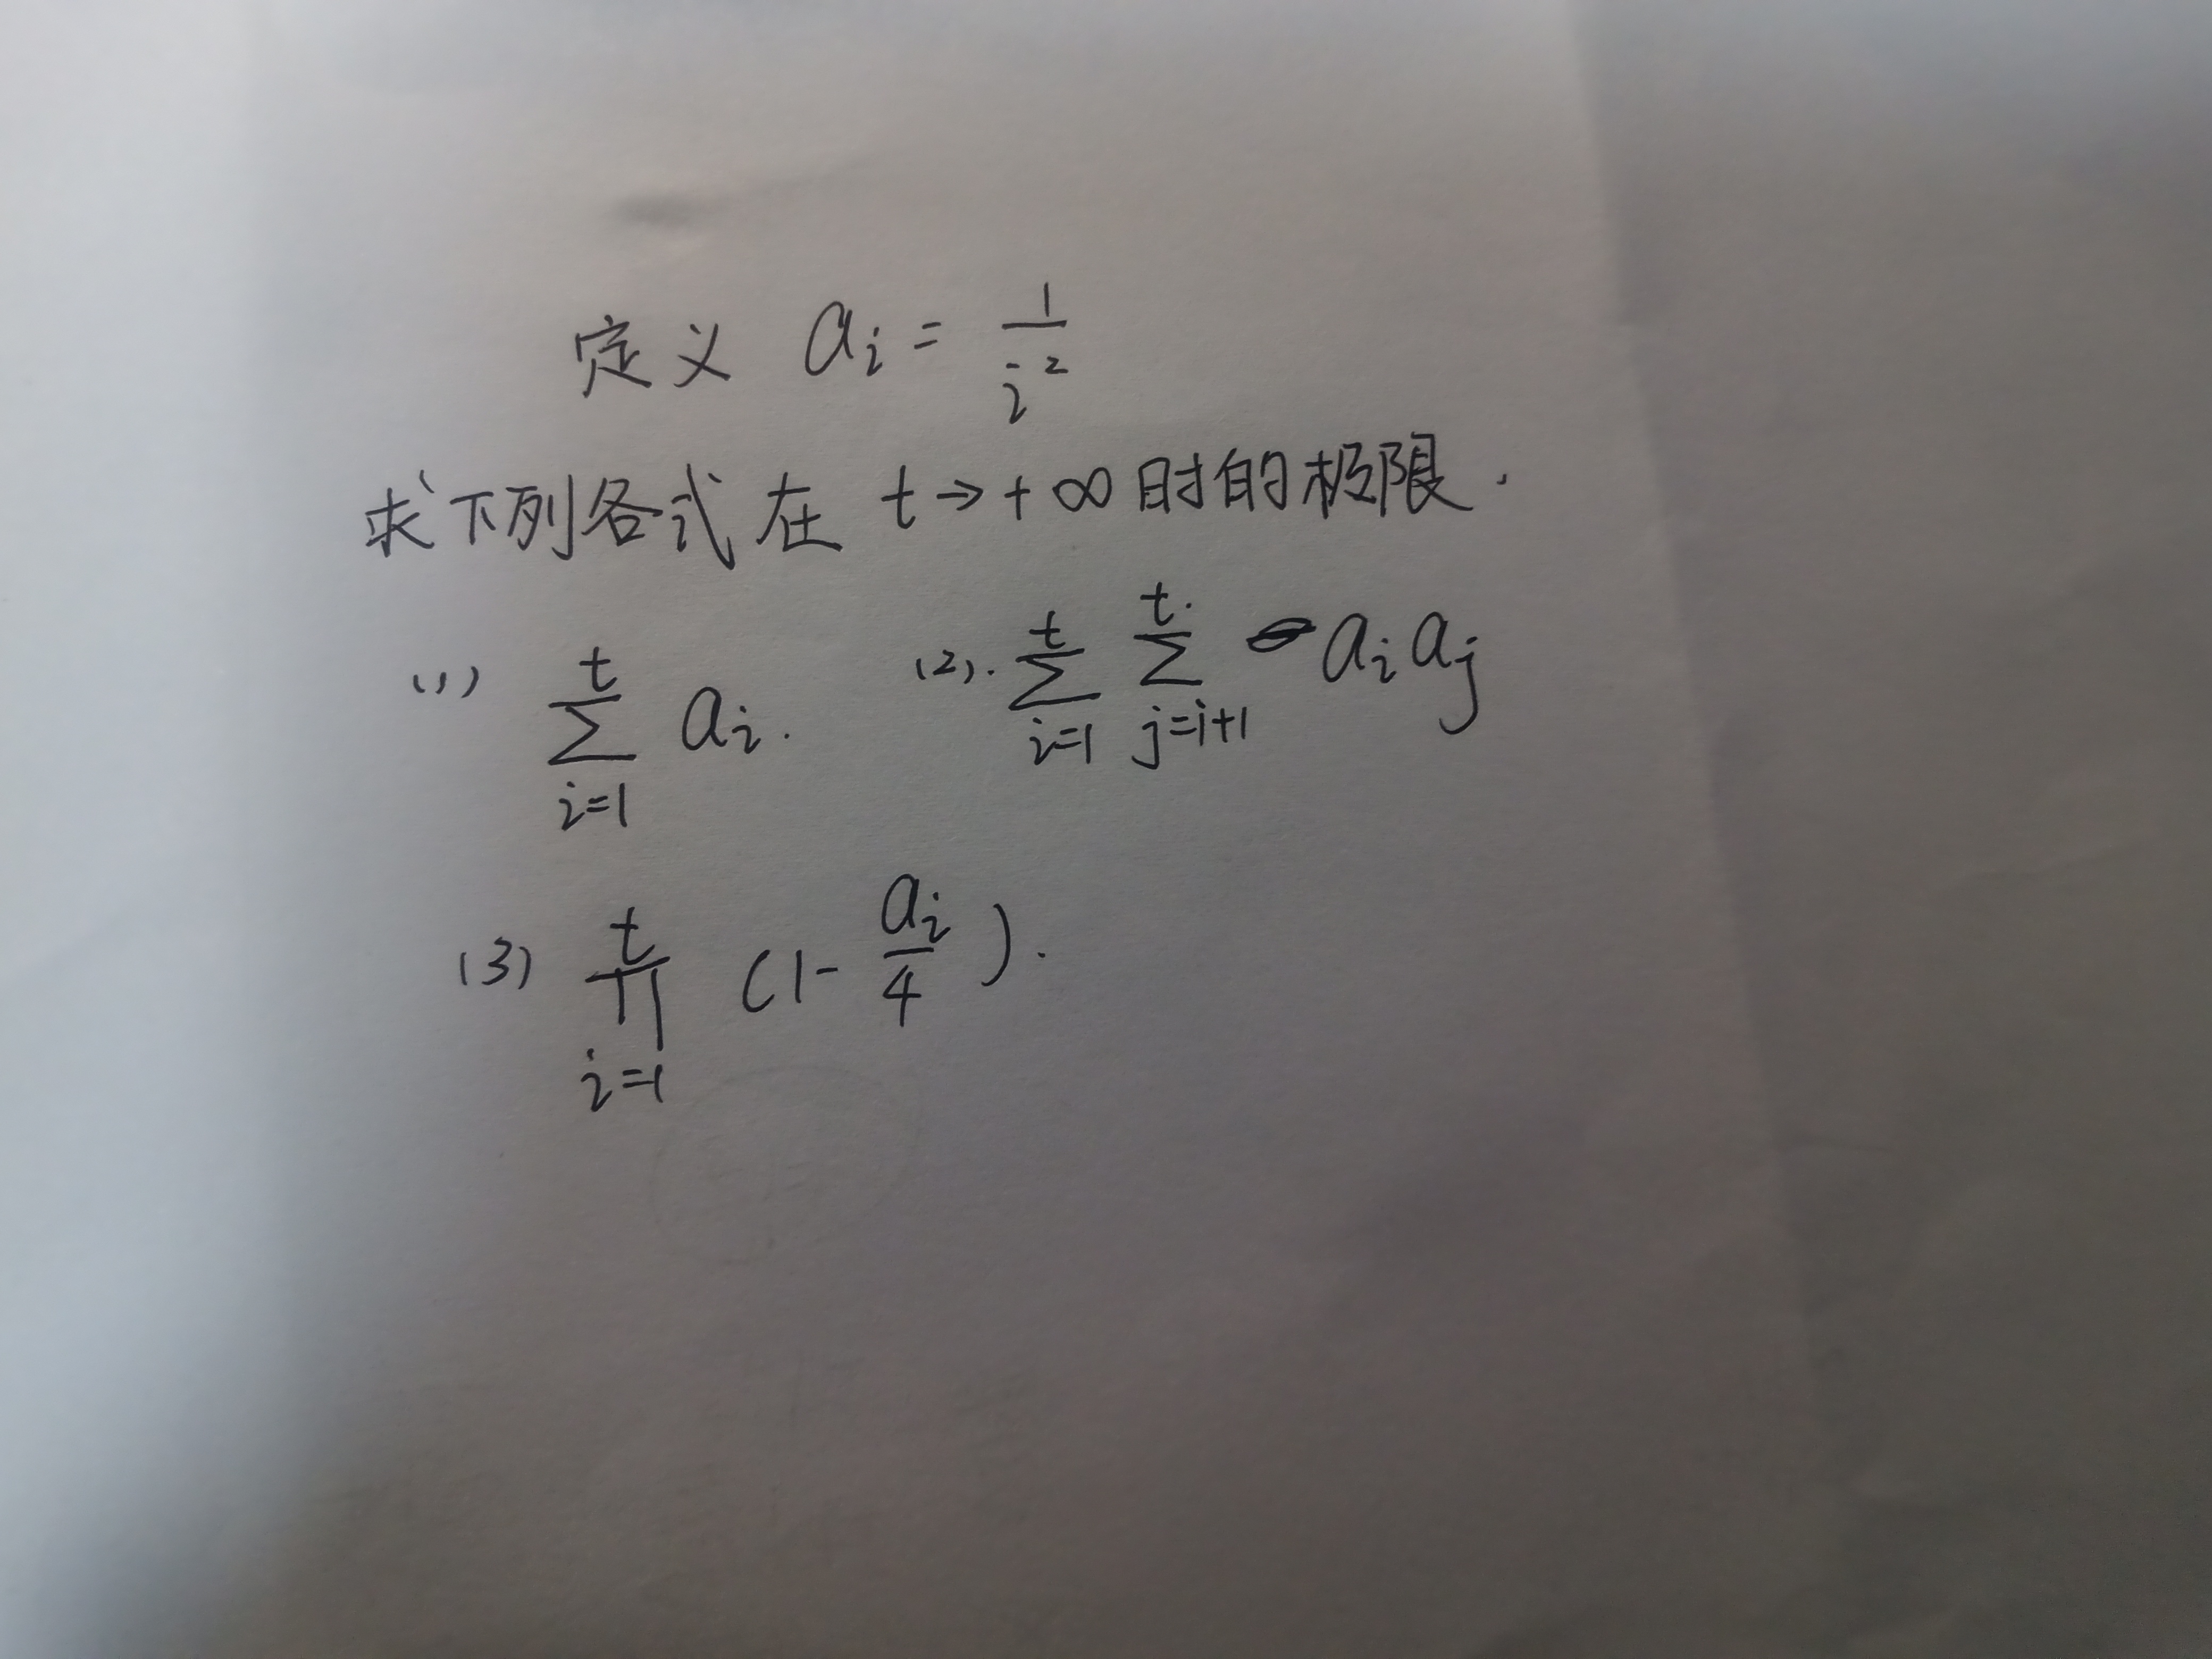 定义 $a_i = \frac{1}{i^2}$
求下列各式在 $t \to +\infty$ 时的极限.
(1) $\sum_{i=1}^{t} a_i.$ (2). $\sum_{i=1}^{t} \sum_{j=i+1}^{t.} a_i a_j$
(3) $\prod_{i=1}^{t} (1 - \frac{a_i}{4}).$